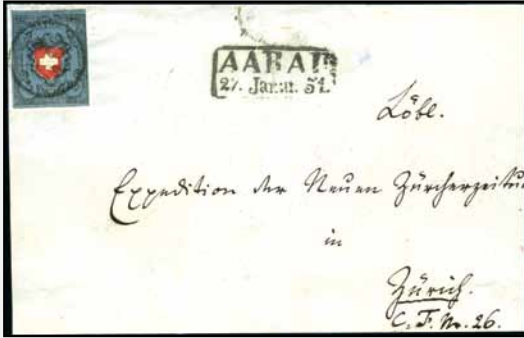 AARAU
27. Janu. 51.
Löbl.
Expedition der Neuen Zürcherzeitu
in
Zürich.
C. F. No. 26.